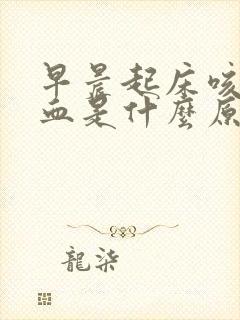 早晨起床咳
血是什麼原
龍柒